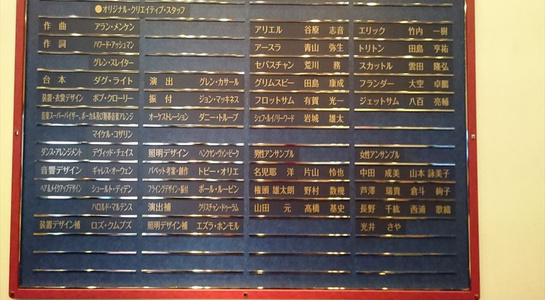 ●オリジナル・クリエイティブ・スタッフ
作曲 アラン・メンケン アリエル 谷原 志音 エリック 竹内 一樹
作詞 ハワード・アッシュマン アースラ 青山 弥生 トリトン 田島 亨祐
グレン・スレイター セバスチャン 荒川 務 スカットル 雲田 隆弘
台本 ダグ・ライト 演出 グレン・カサール グリムスビー 田島 康成 フランダー 大空 卓鵬
装置・衣裳デザイン ボブ・クローリー 振付 ジョン・マッギネス フロットサム 有賀 光一 ジェットサム 八百 亮輔
音楽スーパーバイザー、ボーカル及び オーケストレーション ダニー・トルーブ シェフ・ルイ/リーワード 岩城 雄太
マイケル・コザリン
ダンス・アレンジメント デヴィッド・チェイス 照明デザイン 男性アンサンブル 女性アンサンブル
音響デザイン ギャレス・オーウェン パペット考案・創作 トビー・オリエ 名児耶 洋 片山 怜也 中田 成美 山本 詠美子
ヘア&メイクアップデザイン シュールト・ディデン フライングデザイン・振付 ポール・ルービン 権頭 雄太朗 野村 数幾 芦澤 瑞貴 倉斗 絢子
ハロルド・マルテンス 演出補 クリスチャン・ドゥーラム 山田 元 髙橋 基史 長野 千紘 西浦 歌織
装置デザイン補 ロズ・クームブズ 照明デザイン補 エズラ・ホンモル 光井 さや